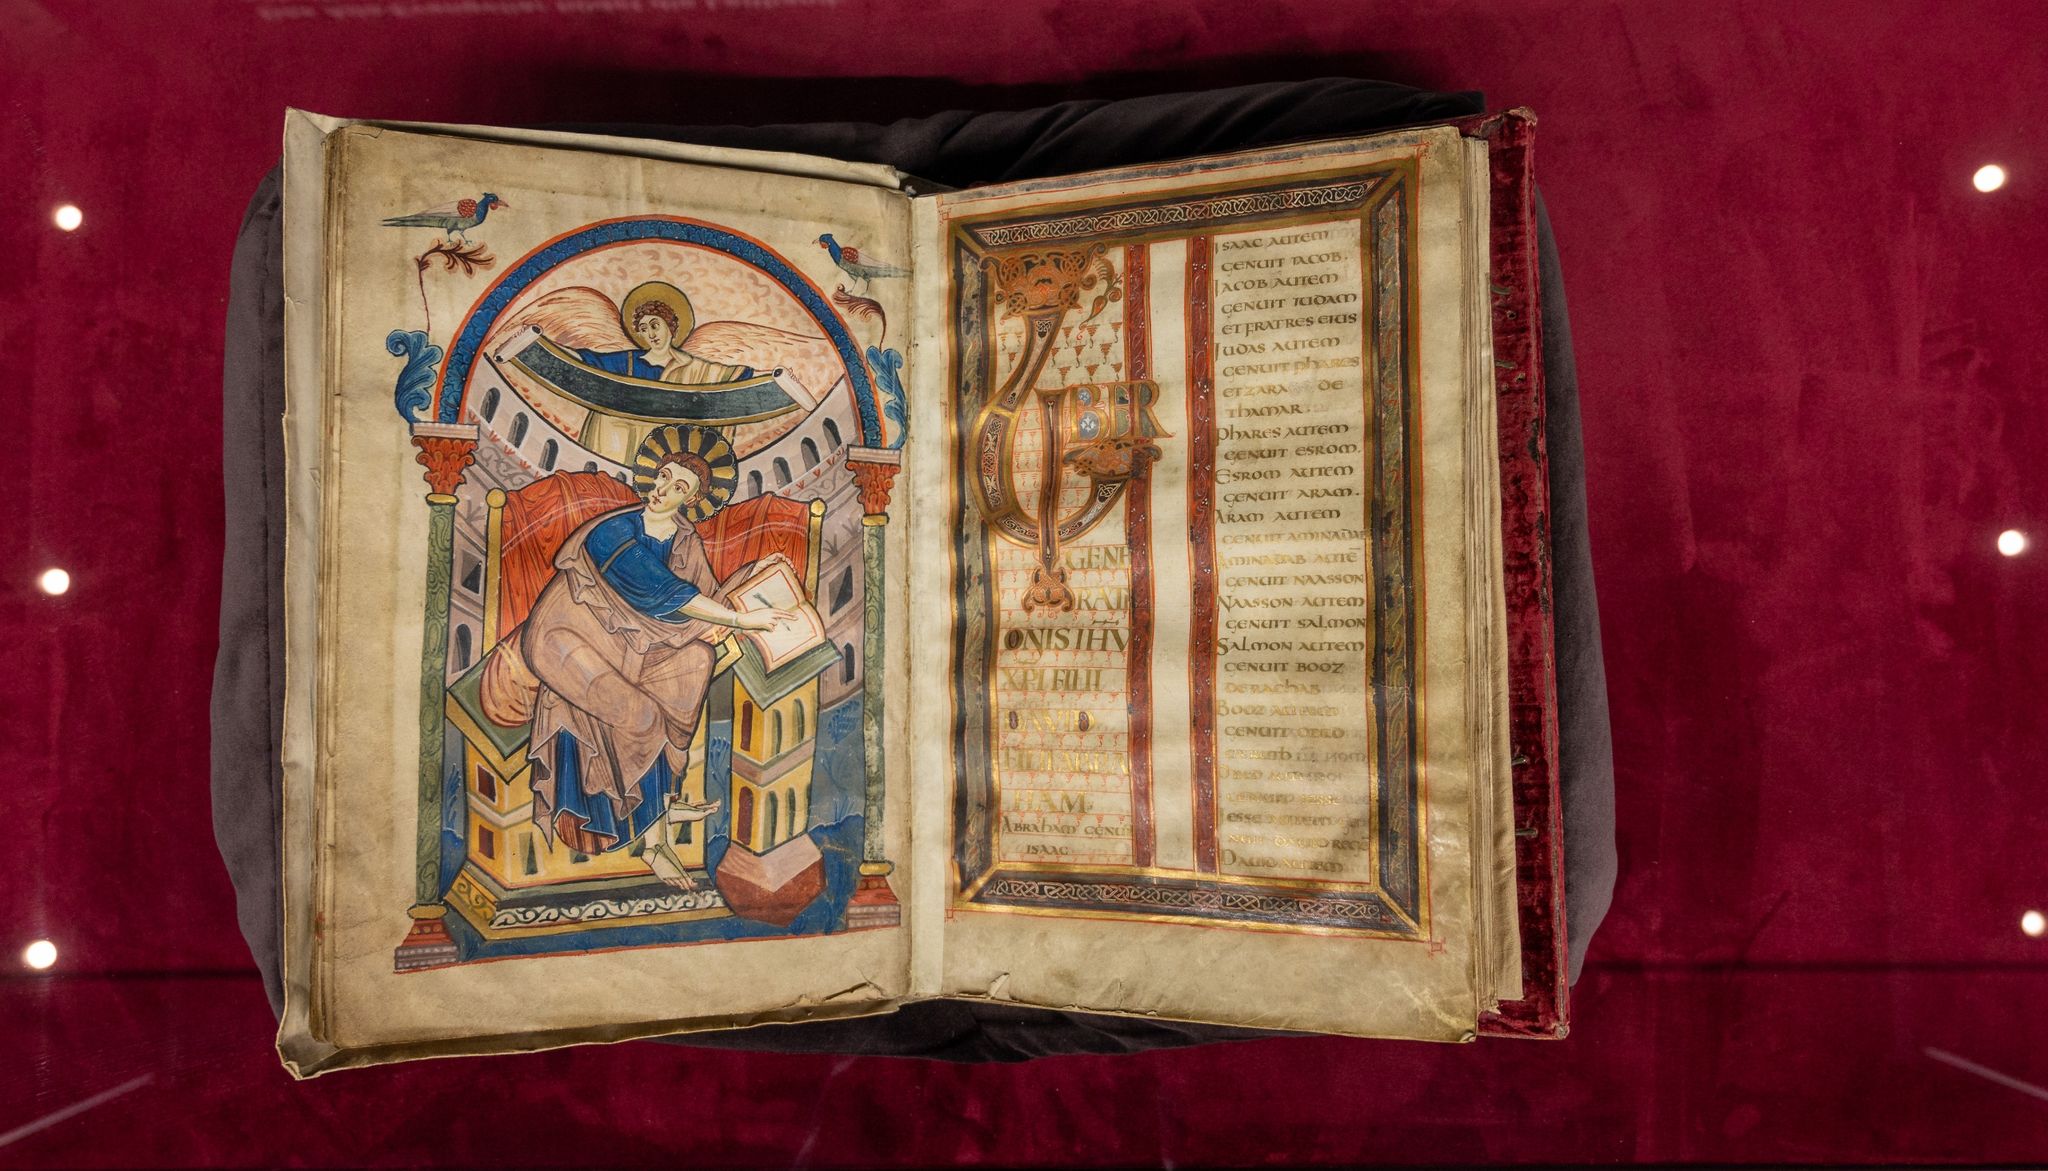 LIBER
GENE
RATI
ONIS IHV
XPI FILII
DAVID
FILII ABRA
HAM.
Abraham genuit
isaac
Isaac autem
genuit iacob.
Iacob autem
genuit iudam
et fratres eius
Iudas autem
genuit phares
et zara de
thamar.
Phares autem
genuit esrom.
Esrom autem
genuit aram.
Aram autem
genuit aminadab
Aminadab autē
genuit naasson
Naasson autem
genuit salmon
Salmon autem
genuit booz
de rachab
Booz autem
genuit obed
ex ruth
Obed autem
genuit iesse
Iesse autem ge
nuit david regē
David autem